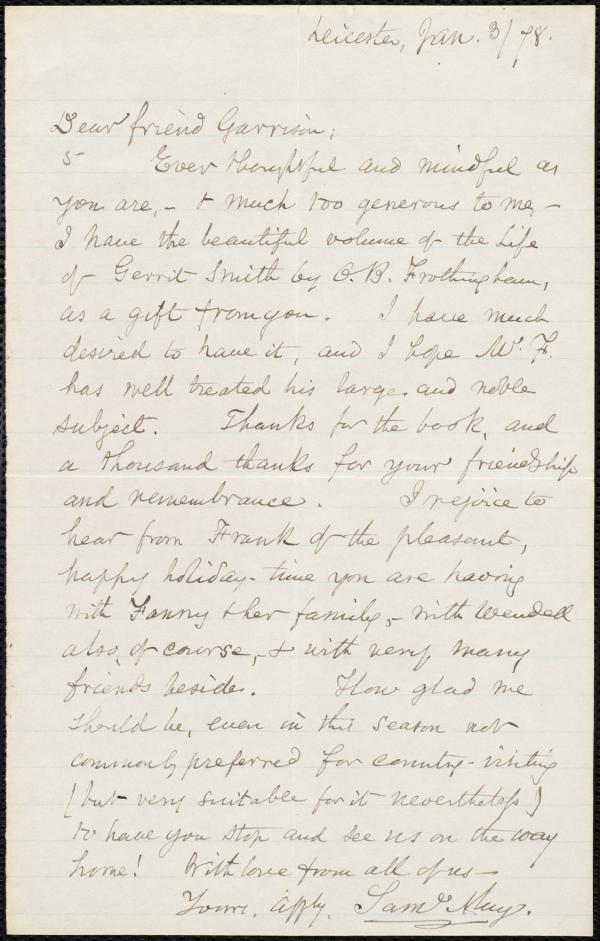 Leicester, Jan. 3/78.
Dear friend Garrison;
5 Ever thoughtful and mindful as
you are, - & much too generous to me, -
I have the beautiful volume of the Life
of Gerrit Smith by O. B. Frothingham,
as a gift from you. I have much
desired to have it, and I hope Mr. F.
has well treated his large and noble
subject. Thanks for the book, and
a thousand thanks for your friendship
and remembrance. I rejoice to
hear from Frank of the pleasant,
happy holiday-time you are having
with Fanny & her family, - with Wendell
also, of course, - & with very many
friends beside. How glad we
should be, even in this season not
commonly preferred for country-visiting
(but very suitable for it nevertheless)
to have you stop and see us on the way
home! With love from all of us -
Yours, affy, Saml. May.